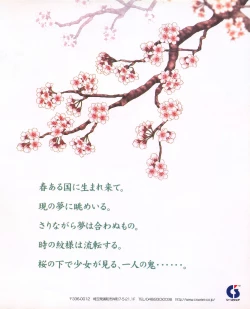 春ある国に生まれ来て。
現の夢に眺めいる。
さりながら夢は合わぬもの。
時の紋様は流転する。
桜の下で少女が見る、一人の鬼・・・・・・。